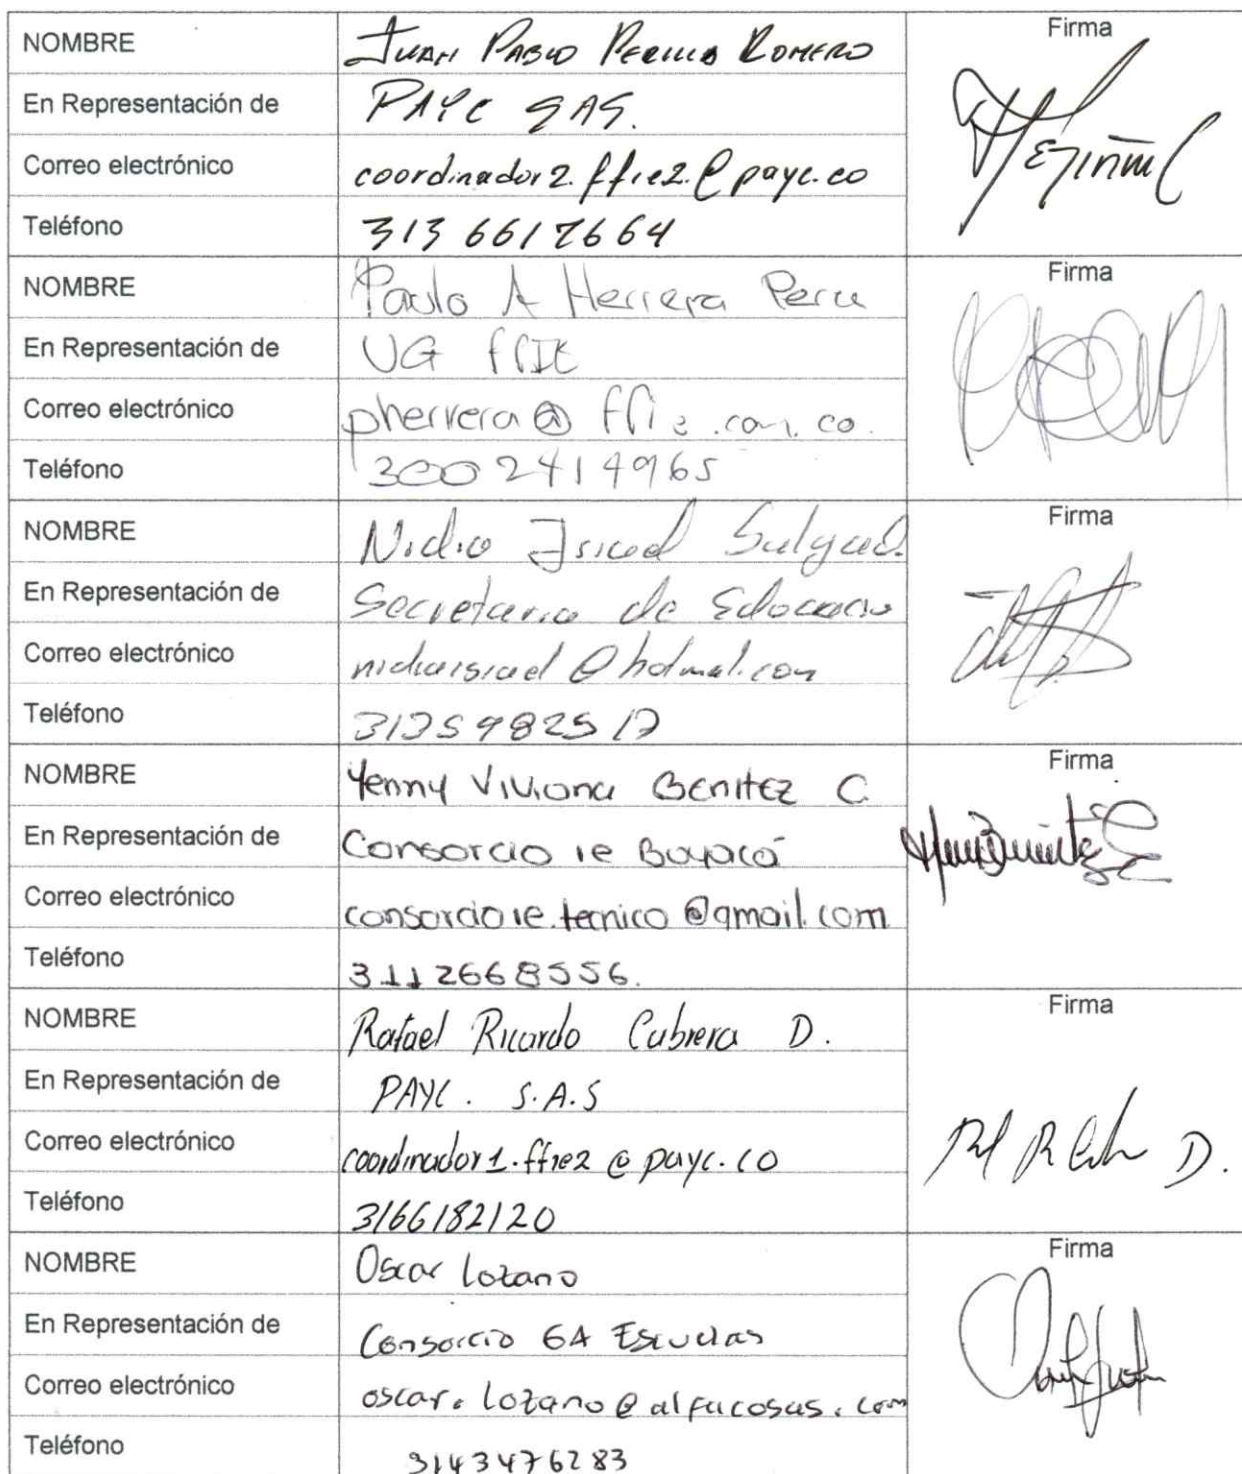 NOMBRE JUAN PABLO PERILLA ROMERO Firma
En Representación de PAYC SAS.
Correo electrónico coordinador2.ffie2.@payc.co
Teléfono 313 6617664
NOMBRE Paulo A Herrera Firma
En Representación de UG ffIE
Correo electrónico pherrera@ffie.com.co.
Teléfono 3002414965
NOMBRE Nidia Salgado. Firma
En Representación de Secretaria de Educacion
Correo electrónico
Teléfono
NOMBRE Yenny Viviana BENITEZ C. Firma
En Representación de Consorcio ie Boyacá
Correo electrónico consorcioie.tecnico@gmail.com
Teléfono 3112668556.
NOMBRE Rafael Ricardo Cabrera D. Firma
En Representación de PAYC. S.A.S
Correo electrónico coordinador1.ffie2@payc.co
Teléfono 3166182120
NOMBRE Oscar Lozano Firma
En Representación de Consorcio GA Escuelas
Correo electrónico oscar.lozano@alfacosas.com
Teléfono 3143476283